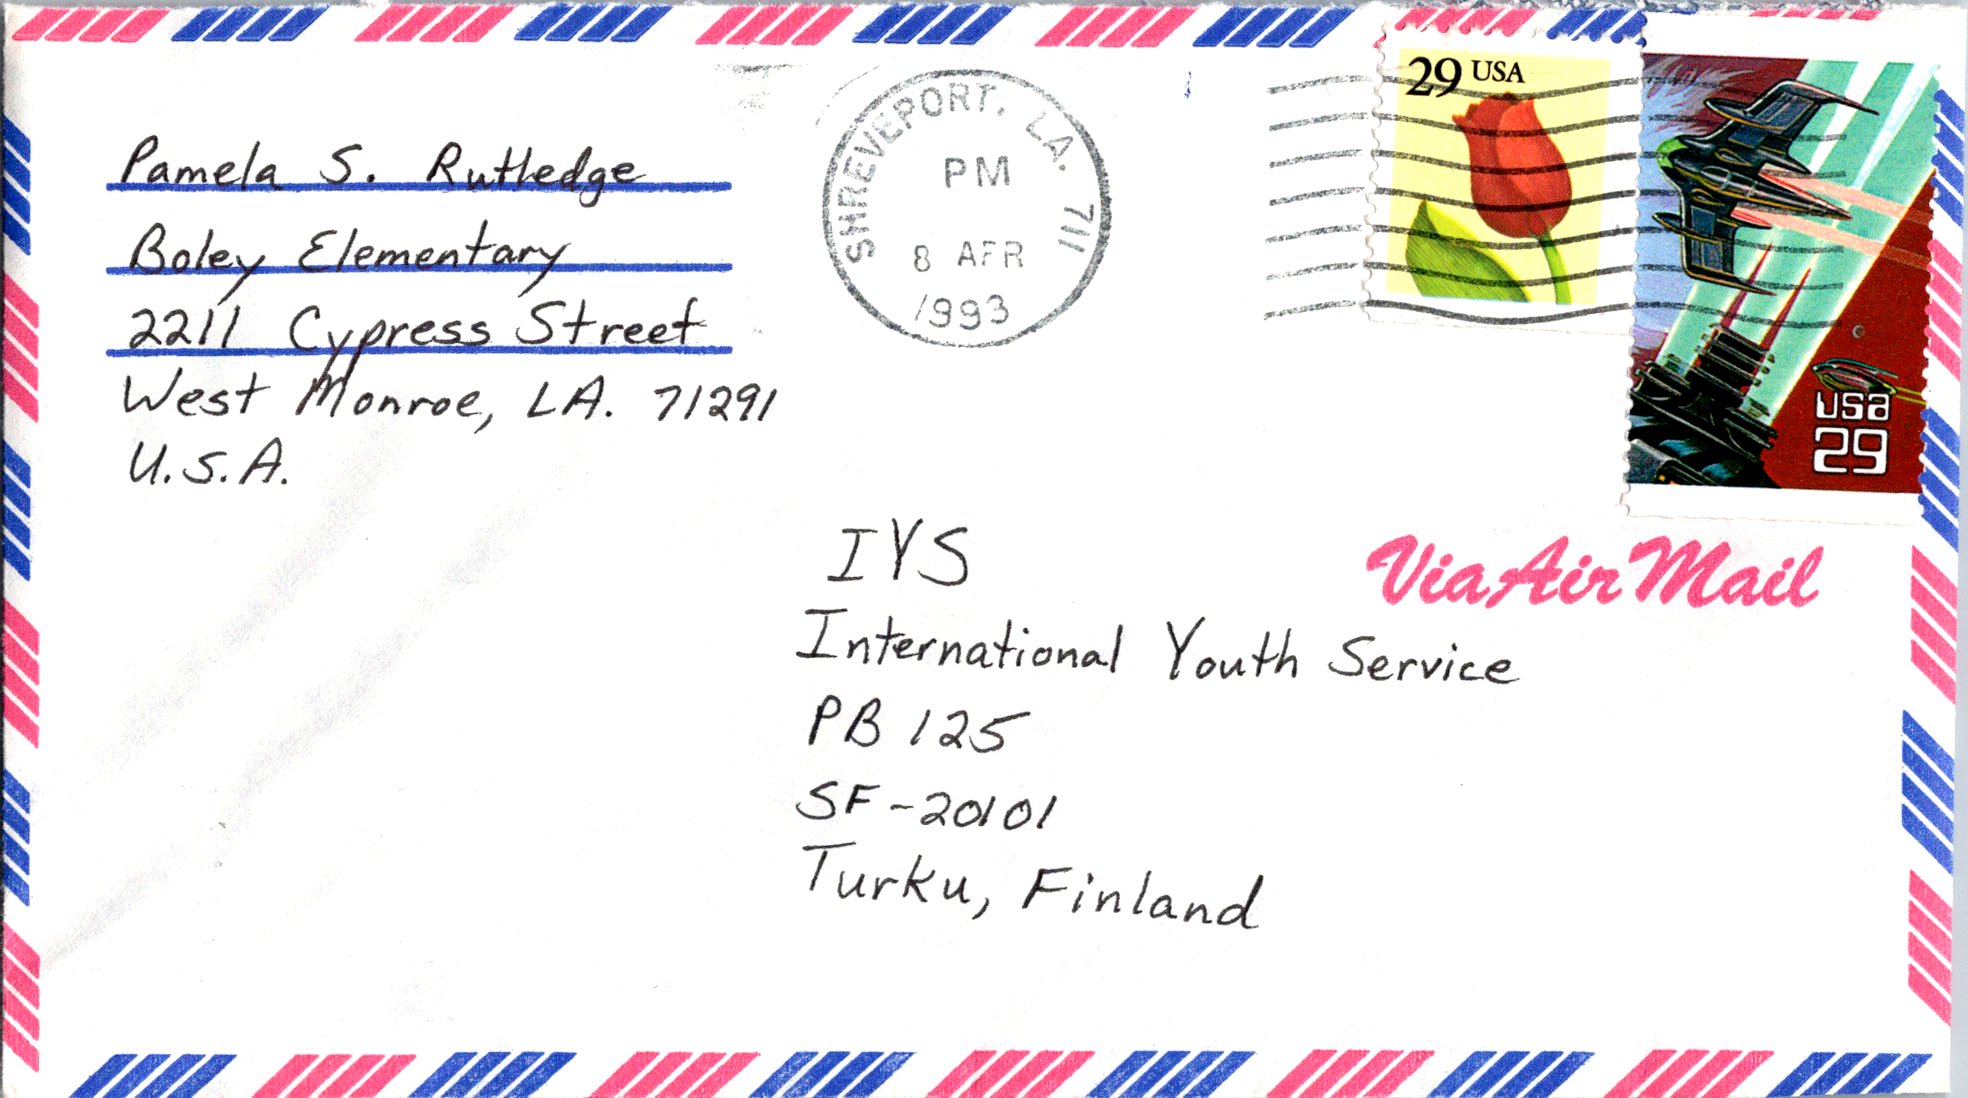 Pamela S. Rutledge
Boley Elementary
2211 Cypress Street
West Monroe, LA. 71291
U.S.A.
SHREVEPORT, LA. 711
PM
8 APR
1993
29 USA
usa
29
Via Air Mail
IYS
International Youth Service
PB 125
SF-20101
Turku, Finland